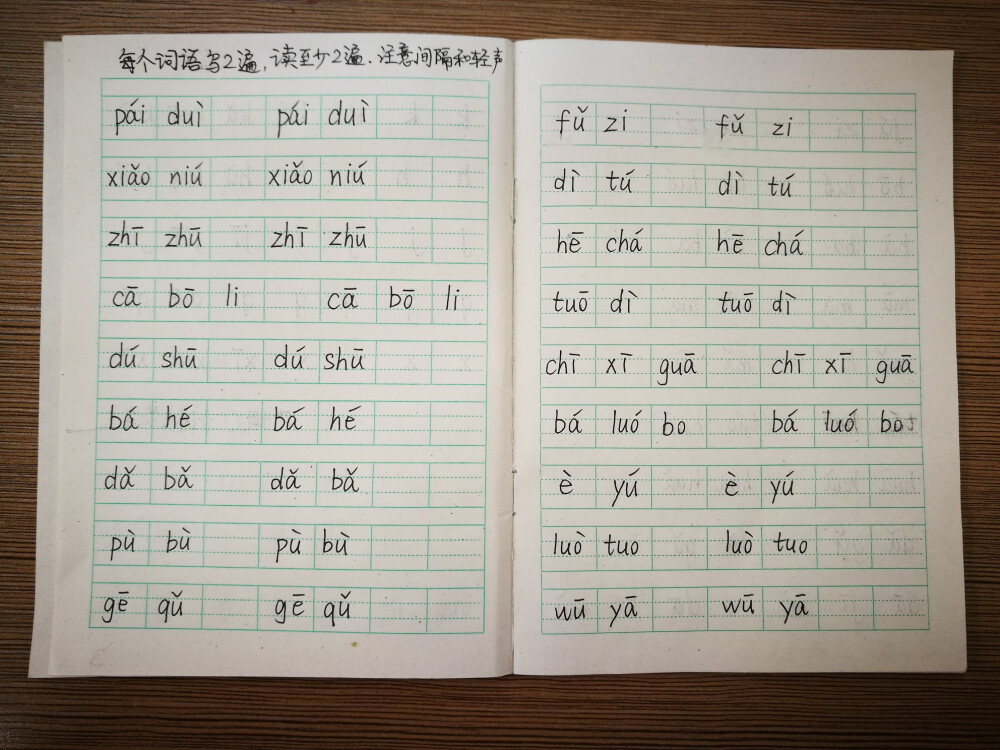 每个词语写2遍,读至少2遍.注意间隔和轻声
pái duì pái duì
xiǎo niú xiǎo niú
zhī zhū zhī zhū
cā bō li cā bō li
dú shū dú shū
bá hé bá hé
dǎ bǎ dǎ bǎ
pù bù pù bù
gē qǔ gē qǔ
fǔ zi fǔ zi
dì tú dì tú
hē chá hē chá
tuō dì tuō dì
chī xī guā chī xī guā
bá luó bo bá luó bo
è yú è yú
luò tuo luò tuo
wū yā wū yā